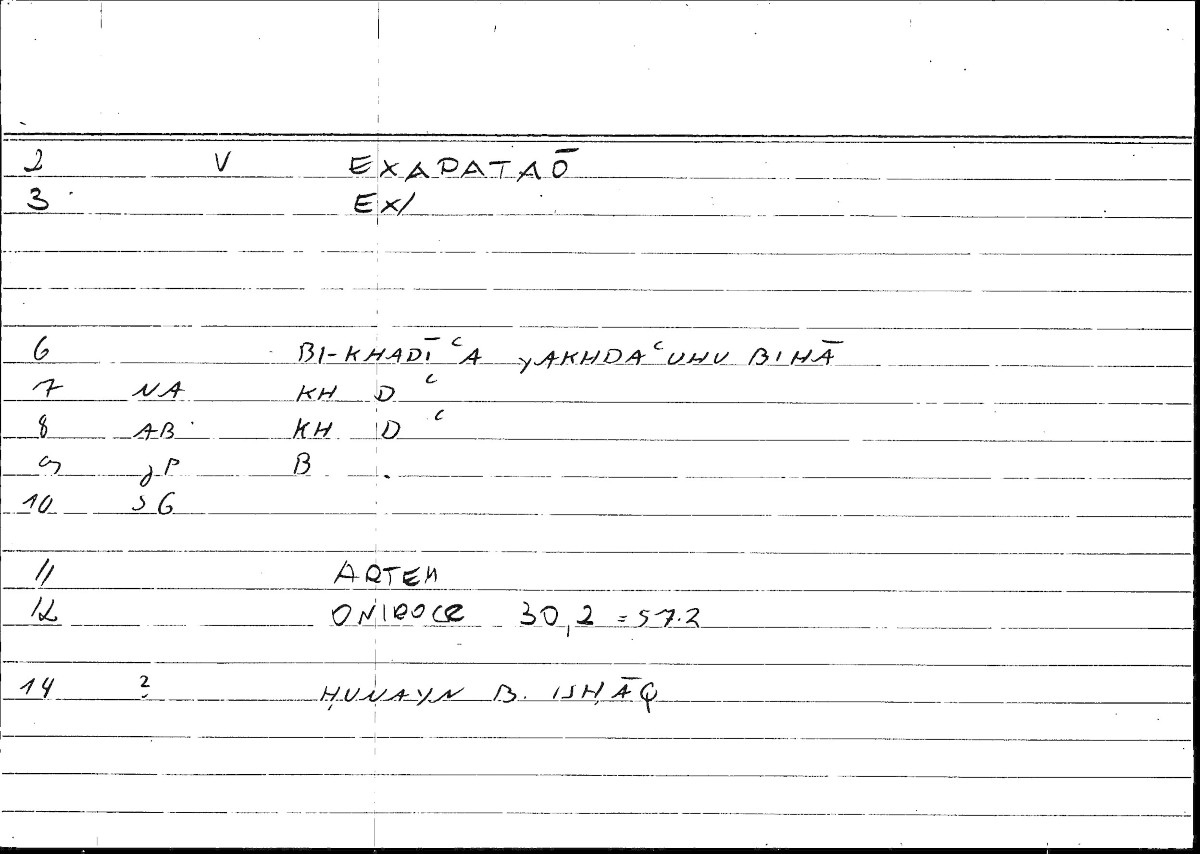 2 V EXAPATAŌ
3 EX/
6 BI-KHADĪʿA YAKHDAʿUHU BIHĀ
7 NA KH D ʿ
8 AB KH D ʿ
9 JP B .
10 SG
11 ARTEM
12 ONIROCR 30,2 = 57.2
14 ? ḤUNAYN B. ISḤĀQ